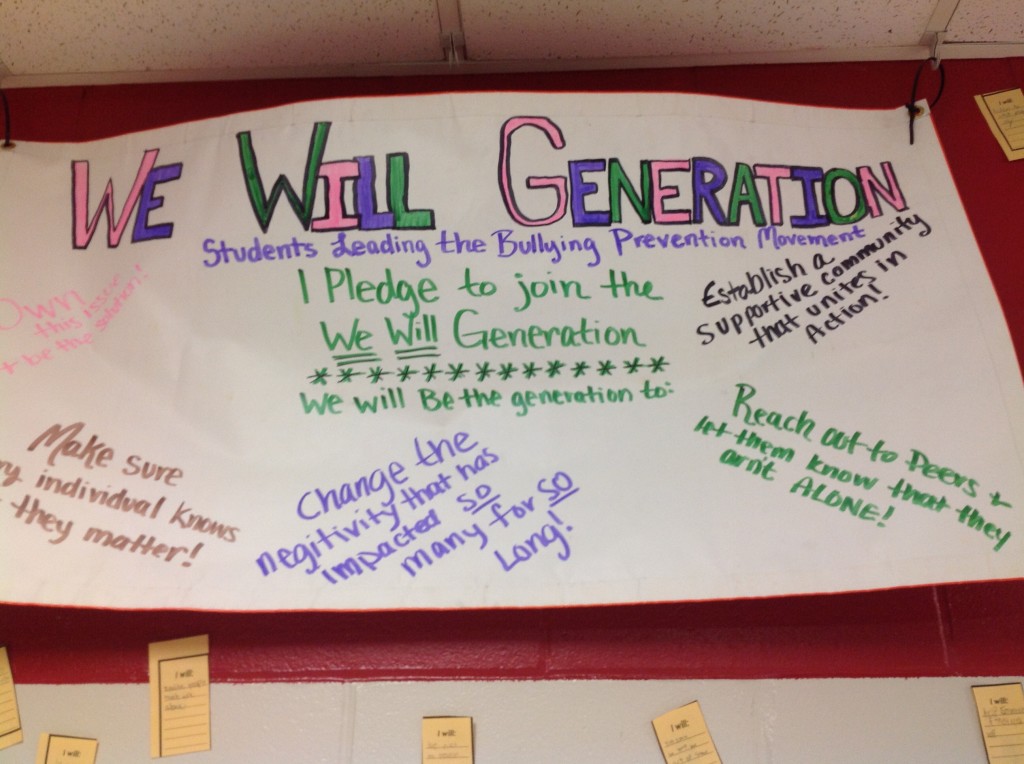 WE WILL GENERATION
Students Leading the Bullying Prevention Movement
I Pledge to join the
We Will Generation
*************
We will Be the generation to:
Own
this issue
+ be the solution!
Establish a
supportive community
that unites in
Action!
Make sure
ry individual knows
they matter!
Change the
negitivity that has
impacted so
many for so
Long!
Reach out to Peers +
let them know that they
arn't ALONE!
I will:
I will:
I will:
I will:
I will:
I will: